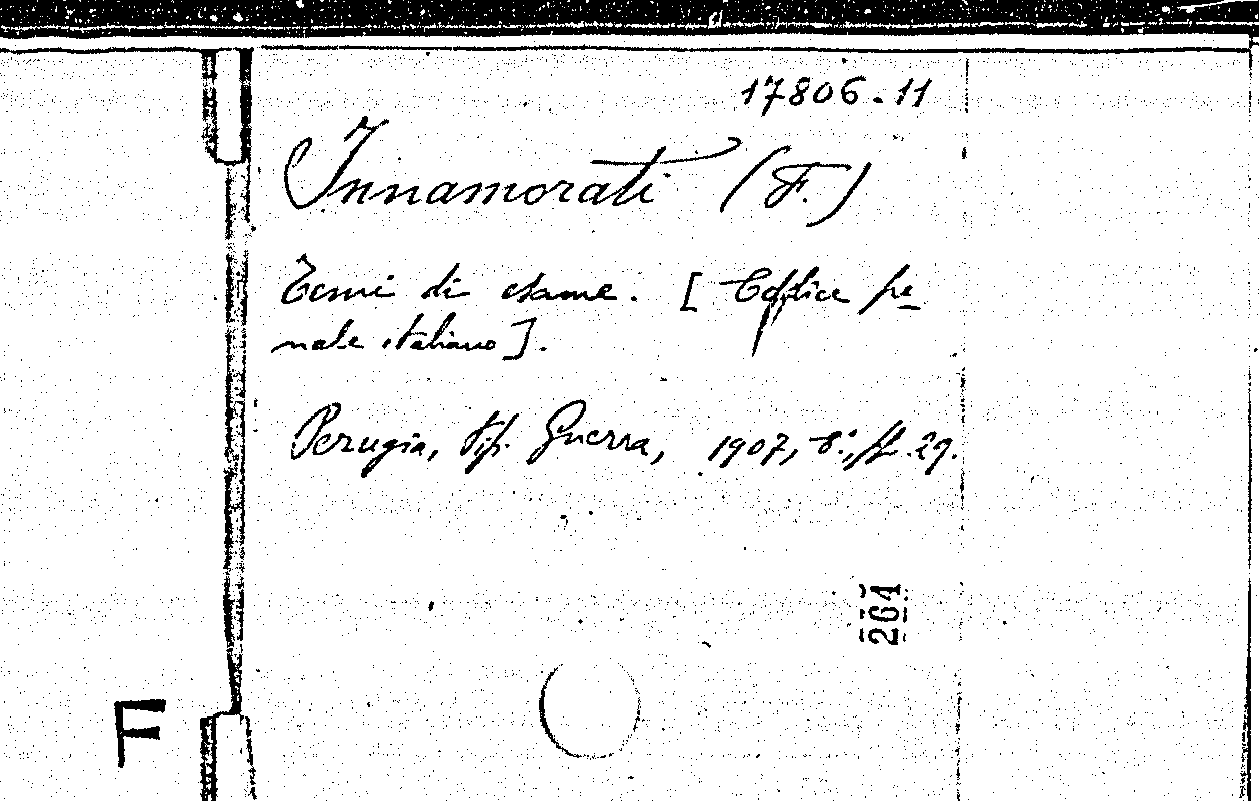 17806.11
Innamorati (F.)
Temi di esame. [Codice pe-
nale italiano].
Perugia, tip. Guerra, 1907, 8°, pp. 29.
264
F